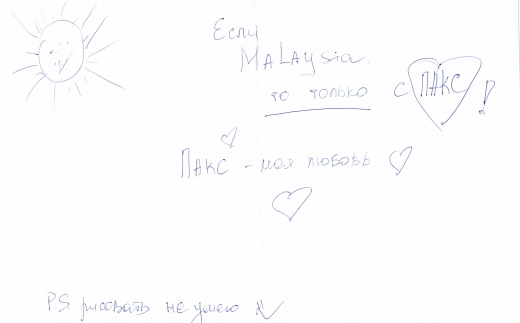 Если
MALAYSia,
то только с ПАКС!
ПАКС - моя любовь
P.S. рисовать не умею